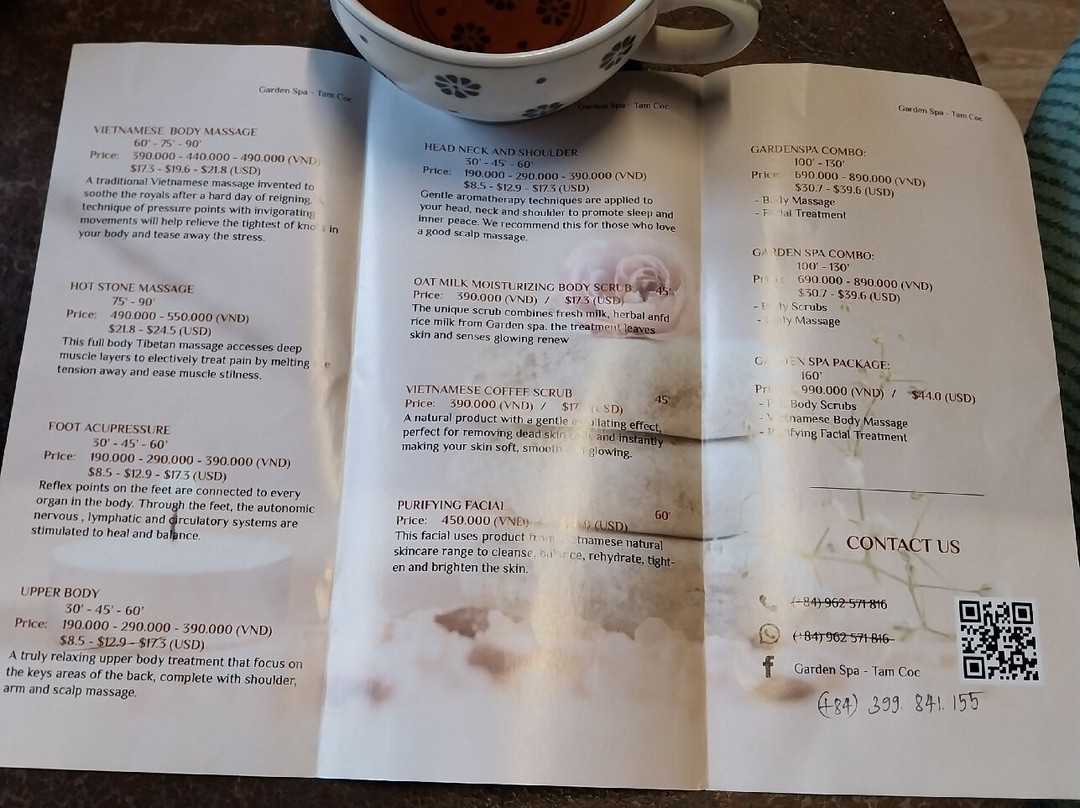 Garden Spa - Tam Coc
VIETNAMESE BODY MASSAGE
60' - 75' - 90'
Price: 390.000 - 440.000 - 490.000 (VND)
$17.3 - $19.6 - $21.8 (USD)
A traditional Vietnamese massage invented to
soothe the royals after a hard day of reigning,
technique of pressure points with invigorating
movements will help relieve the tightest of in
your body and tease away the stress.
HOT STONE MASSAGE
75' - 90'
Price: 490.000 - 550.000 (VND)
$21.8 - $24.5 (USD)
This full body Tibetan massage accesses deep
muscle layers to electively treat pain by melting
tension away and ease muscle stilness.
FOOT ACUPRESSURE
30' - 45' - 60'
Price: 190.000 - 290.000 - 390.000 (VND)
$8.5 - $12.9 - $17.3 (USD)
Reflex points on the feet are connected to every
organ in the body. Through the feet, the autonomic
nervous , lymphatic and circulatory systems are
stimulated to heal and balance.
UPPER BODY
30' - 45' - 60'
Price: 190.000 - 290.000 - 390.000 (VND)
$8.5 - $12.9 - $17.3 (USD)
A truly relaxing upper body treatment that focus on
the keys areas of the back, complete with shoulder,
arm and scalp massage.
Garden Spa - Tam Coc
HEAD NECK AND SHOULDER
30' - 45' - 60'
Price: 190.000 - 290.000 - 390.000 (VND)
$8.5 - $12.9 - $17.3 (USD)
Gentle aromatherapy techniques are applied to
your head, neck and shoulder to promote sleep and
inner peace. We recommend this for those who love
a good scalp massage.
OAT MILK MOISTURIZING BODY SCRUB 45'
Price: 390.000 (VND) / $17.3 (USD)
The unique scrub combines fresh milk, herbal anfd
rice milk from Garden spa. the treatment leaves
skin and senses glowing renew
VIETNAMESE COFFEE SCRUB 45'
Price: 390.000 (VND) / (USD)
A natural product with a gentle exfoliating effect,
perfect for removing dead skin and instantly
making your skin soft, smooth glowing.
PURIFYING FACIAL 60'
Price: 450.000 (VND) (USD)
This facial uses product from Vietnamese natural
skincare range to cleanse, balance, rehydrate, tight-
en and brighten the skin.
Garden Spa - Tam Coc
GARDENSPA COMBO:
100' - 130'
Price: 690.000 - 890.000 (VND)
$30.7 - $39.6 (USD)
- Body Massage
- Facial Treatment
GARDEN SPA COMBO:
100' - 130'
Price: 690.000 - 890.000 (VND)
$30.7 - $39.6 (USD)
- Body Scrubs
- Body Massage
GARDEN SPA PACKAGE:
160'
Price: 990.000 (VND) / $44.0 (USD)
- Body Scrubs
- Vietnamese Body Massage
- Purifying Facial Treatment
CONTACT US
(+84) 962 571 816
(+84) 962 571 816
Garden Spa - Tam Coc
(+84) 399. 841. 155